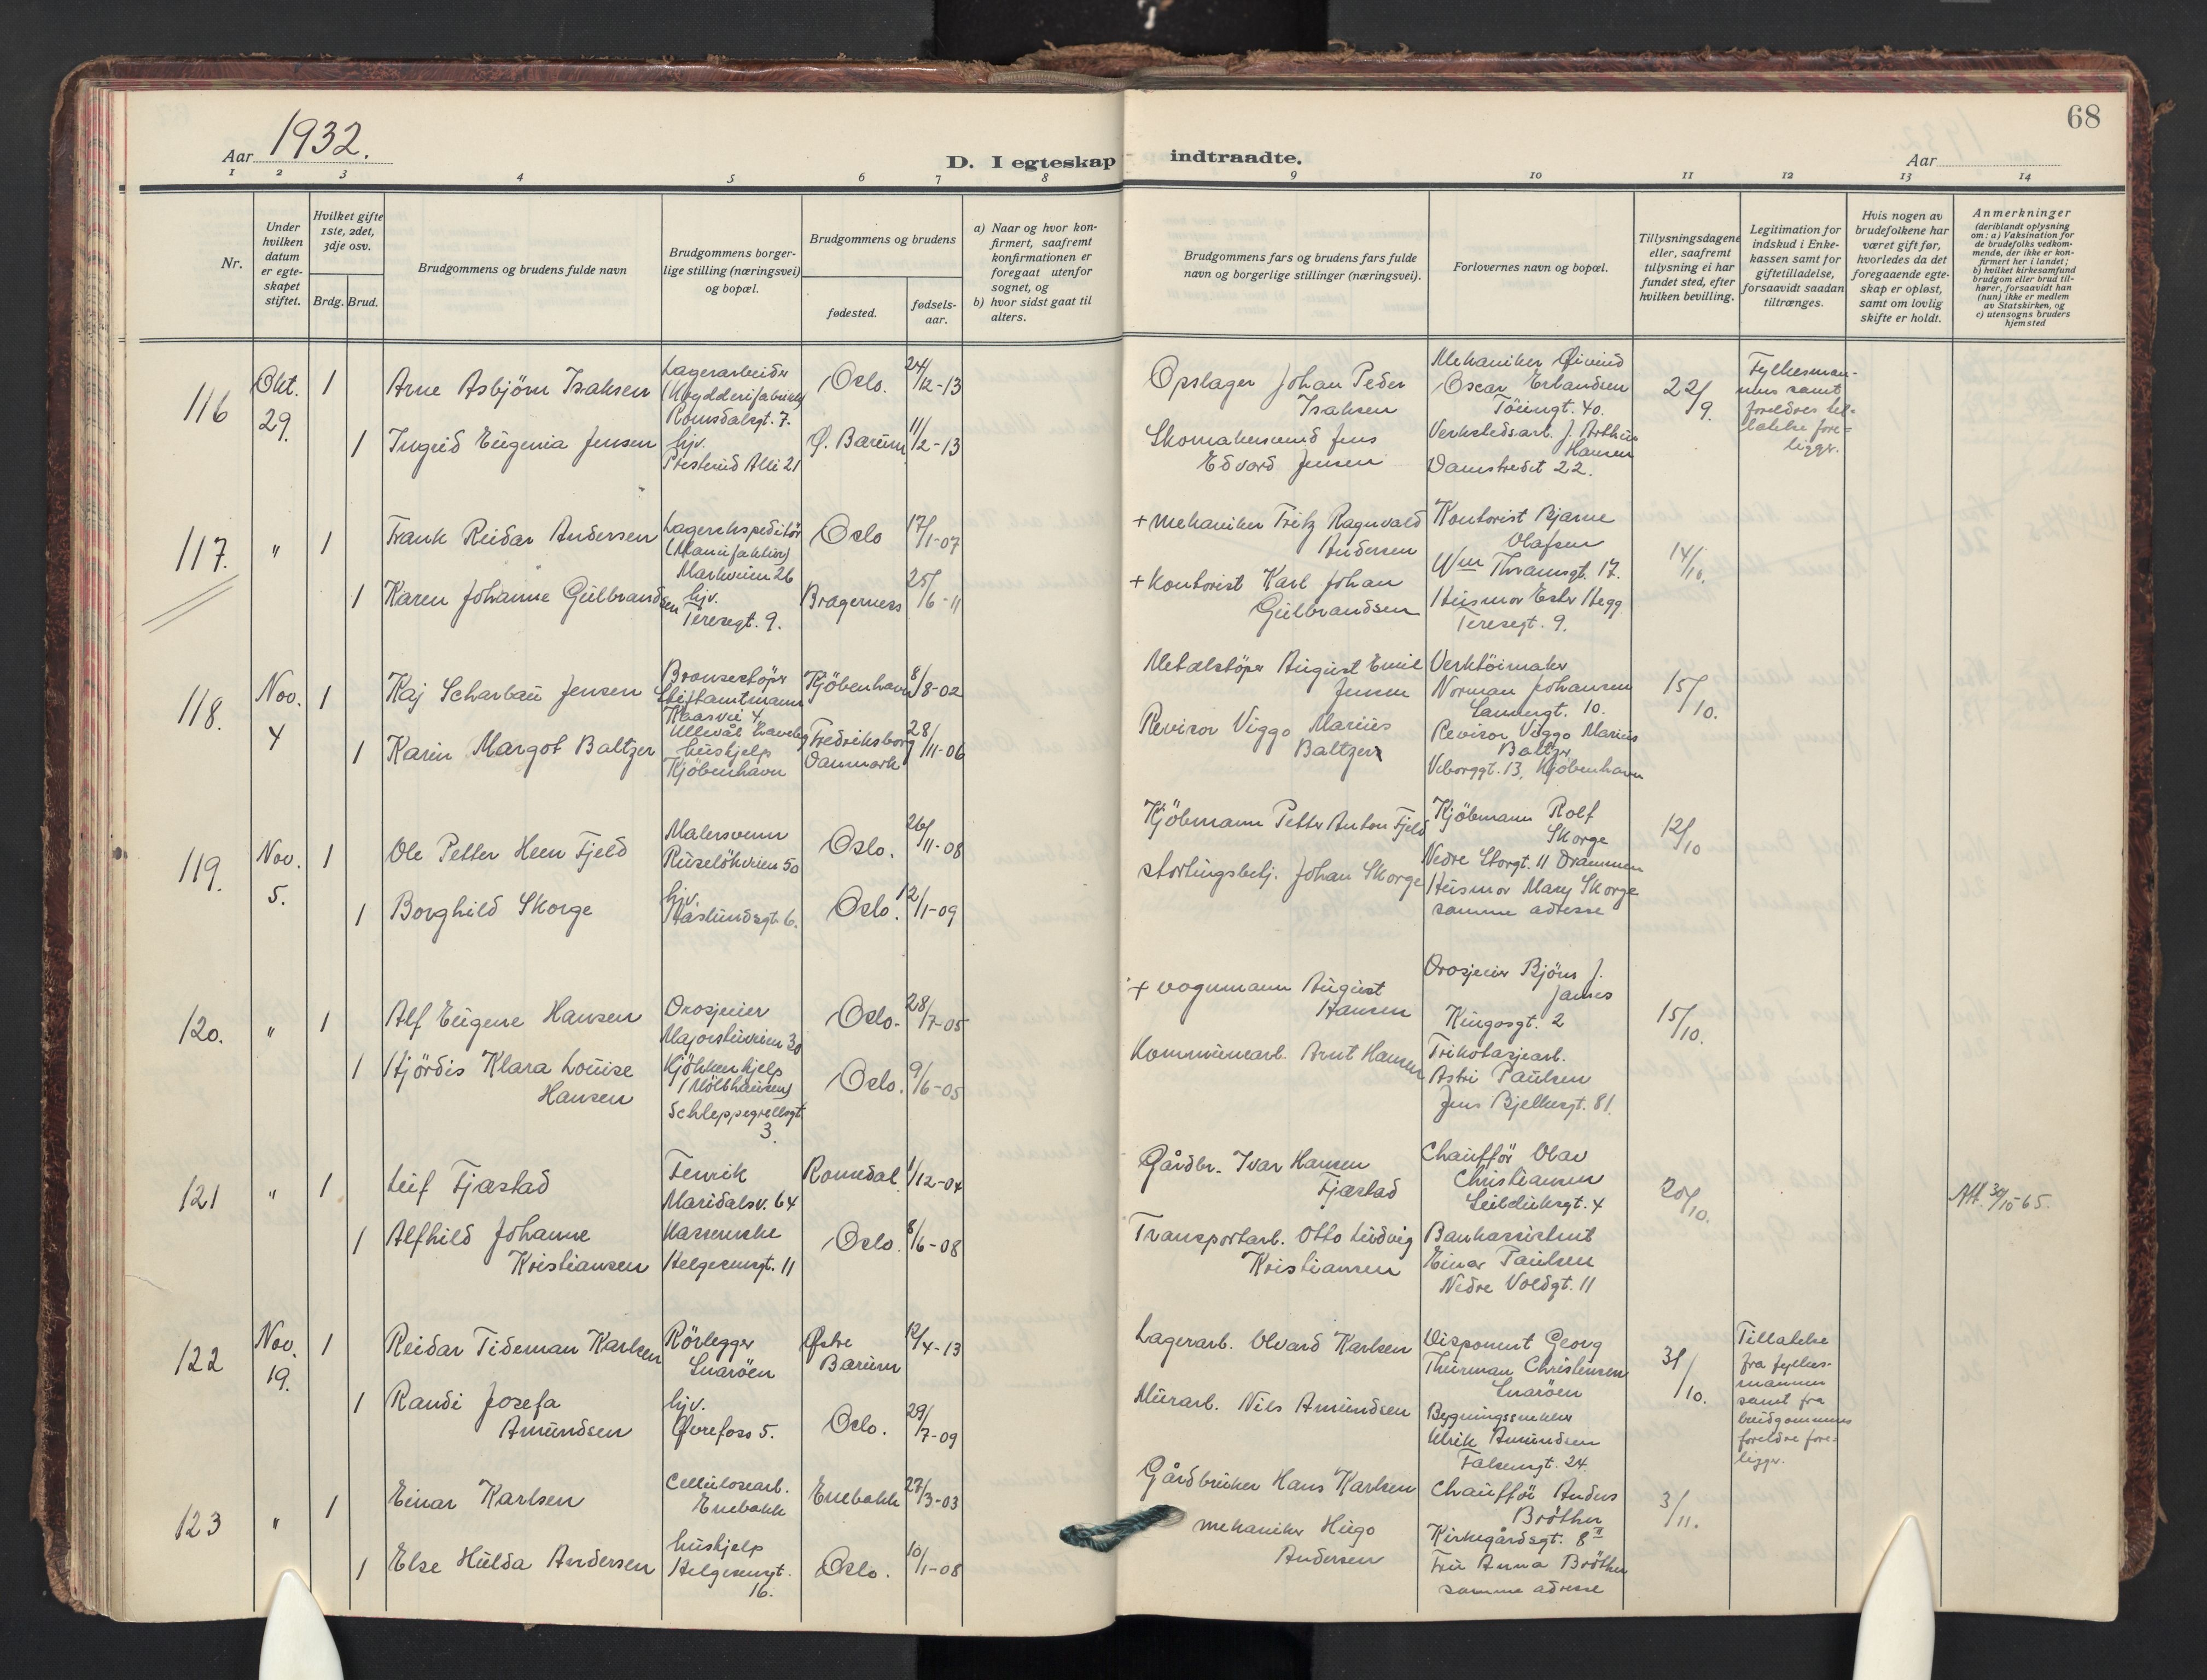 68
Aar 1932.
D. I egteskap indtraadte.
Aar
1 2 3 4 5 6 7 8 9 10 11 12 13 14
Nr.
Under hvilken datum er egteskapet stiftet.
Hvilket gifte 1ste, 2det, 3dje osv.
Brdg. Brud.
Brudgommens og brudens fulde navn
Brudgommens borgerlige stilling (næringsvei) og bopæl.
Brudgommens og brudens
fødested.
fødselsaar.
a) Naar og hvor konfirmert, saafremt konfirmationen er foregaat utenfor sognet, og
b) hvor sidst gaat til alters.
Brudgommens fars og brudens fars fulde navn og borgerlige stillinger (næringsvei).
Forlovernes navn og bopæl.
Tillysningsdagene eller, saafremt tillysning ei har fundet sted, efter hvilken bevilling.
Legitimation for indskud i Enkekassen samt for giftetilladelse, forsaavidt saadan tiltrænges.
Hvis nogen av brudefolkene har været gift før, hvorledes da det foregaaende egteskap er opløst, samt om lovlig skifte er holdt.
Anmerkninger (deriblandt oplysning om: a) Vaksination for de brudefolks vedkommende, der ikke er konfirmert her i landet; b) hvilket kirkesamfund brudgom eller brud tilhører, forsaavidt han (hun) ikke er medlem av Statskirken, og c) utensogns bruders hjemsted
116
Okt. 29.
1
Arne Asbjörn Isaksen
Lagerarbeider
Romsdalsgt. 7.
Oslo.
24/12-13
Opslager Johan Peder
Isaksen
Mekaniker Øivind
Oscar Erlandsen
Töiengt. 40.
22/9.
Fylkesmannens samt
foreldres tillatelse foreligger.
1
Ingrid Eugenia Jensen
hjv.
Presterud Alle 21
Ø. Bærum
11/2-13
Skomakersvend Jens
Edvard Jensen
Verkstedsarb. J. Arthur
Hansen
Damstredet 22.
117.
"
1
Frank Reidar Andersen
Lagerekspeditör
(Manufaktur)
Markveien 26
Oslo
17/1-07
+ mekaniker Fritz Ragnvald
Andersen
Kontorist Bjarne
Olafsen
Wm Thranesgt. 17.
14/10.
1
Karen Johanne Gulbrandsen
hjv.
Teresegt. 9.
Bragernes
25/6-11
+ kontorist Karl Johan
Gulbrandsen
Husmor Ester Hegg
Teresegt. 9.
118.
Nov. 4
1
Kaj Scharbau Jensen
Bronsestöper
Stiftamtmann
Kaasvei 4
Ullevål Haveby
Kjöbenhavn
8/8-02
Metalstöper August Emil
Jensen
Verktöimaker
Norman Johansen
10.
15/10.
1
Karin Margot Baltzer
hushjelp
Kjöbenhavn
Fredriksborg
Danmark
28/11-06
Revisor Viggo Marius
Baltzer
Revisor Viggo Marius
Baltzer
Viborggt. 13, Kjöbenhavn
119.
Nov. 5.
1
Ole Petter Heen Fjeld
Malersvenn
Ruselökveien 50
Oslo.
26/11-08
Kjöbmann Petter Anton Fjeld
Kjöbmann Rolf
Skorge
Nedre Storgt. 11 Drammen
12/10
1
Borghild Skorge
hjv.
Haslundsgt. 6.
Oslo.
12/1-09
stortingsbetj. Johan Skorge
Husmor Mary Skorge
samme adresse
120.
"
1
Alf Eugene Hansen
Drosjeeier
Majorstuveien 30
Oslo.
28/7-05
+ vognmann August
Hansen
Drosjeeier Björn J.
James
Kingosgt. 2
15/10.
1
Hjördis Klara Louise
Hansen
Kjökkenhjelp
(Mölhausen)
Schleppegrellsgt.
3.
Oslo.
9/6-05
Kommunearb. Arnt Hansen
Trikotasjearb.
Astri Paulsen
Jens Bjelkesgt. 81.
121
"
1
Leif Fjæstad
Fenrik
Maridalsv. 64
Romedal
1/12-04
Gårdbr. Ivar Hansen
Fjæstad
Chaufför Olav
Christiansen
Seilduksgt. 4
20/10.
Att. 30/10-65.
1
Alfhild Johanne
Kristiansen
Kasserske
Helgesensgt. 11
Oslo.
8/6-08
Transportarb. Otto Ludvig
Kristiansen
Bankassistent
Einar Paulsen
Nedre Voldgt. 11
122
Nov. 19.
1
Reidar Tideman Karlsen
Rörlegger
Snaröen
Østre
Bærum
12/4-13
Lagerarb. Olvard Karlsen
Disponent Georg
Thurman Christensen
Snaröen
31/10.
Tillatelse
fra fylkesmannen
samt fra
brudgommens
foreldre foreligger.
1
Randi Josefa
Amundsen
hjv.
Øvrefoss 5.
Oslo.
29/7-09
Murarb. Nils Amundsen
Bygningssnekker
Ulrik Amundsen
Falsensgt. 24.
123
"
1
Einar Karlsen
Cellulosearb.
Enebakk
Enebakk
27/3-03
Gårdbruker Hans Karlsen
Chaufför Anders
Bröther
Kirkegårdsgt. 8 II
3/11.
1
Else Hulda Andersen
hushjelp
Helgesensgt.
16.
Oslo.
10/1-08
mekaniker Hugo
Andersen
Fru Anna Bröther
samme adresse